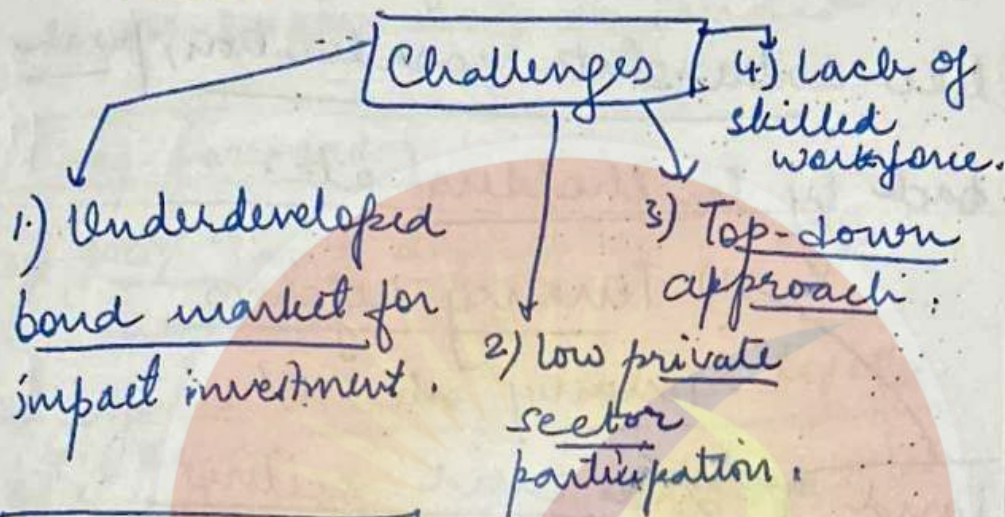 Challenges
1.) Underdeveloped
bond market for
impact investment.
2) low private
sector
participation.
3) Top-down
approach.
4) Lack of
skilled
workforce.